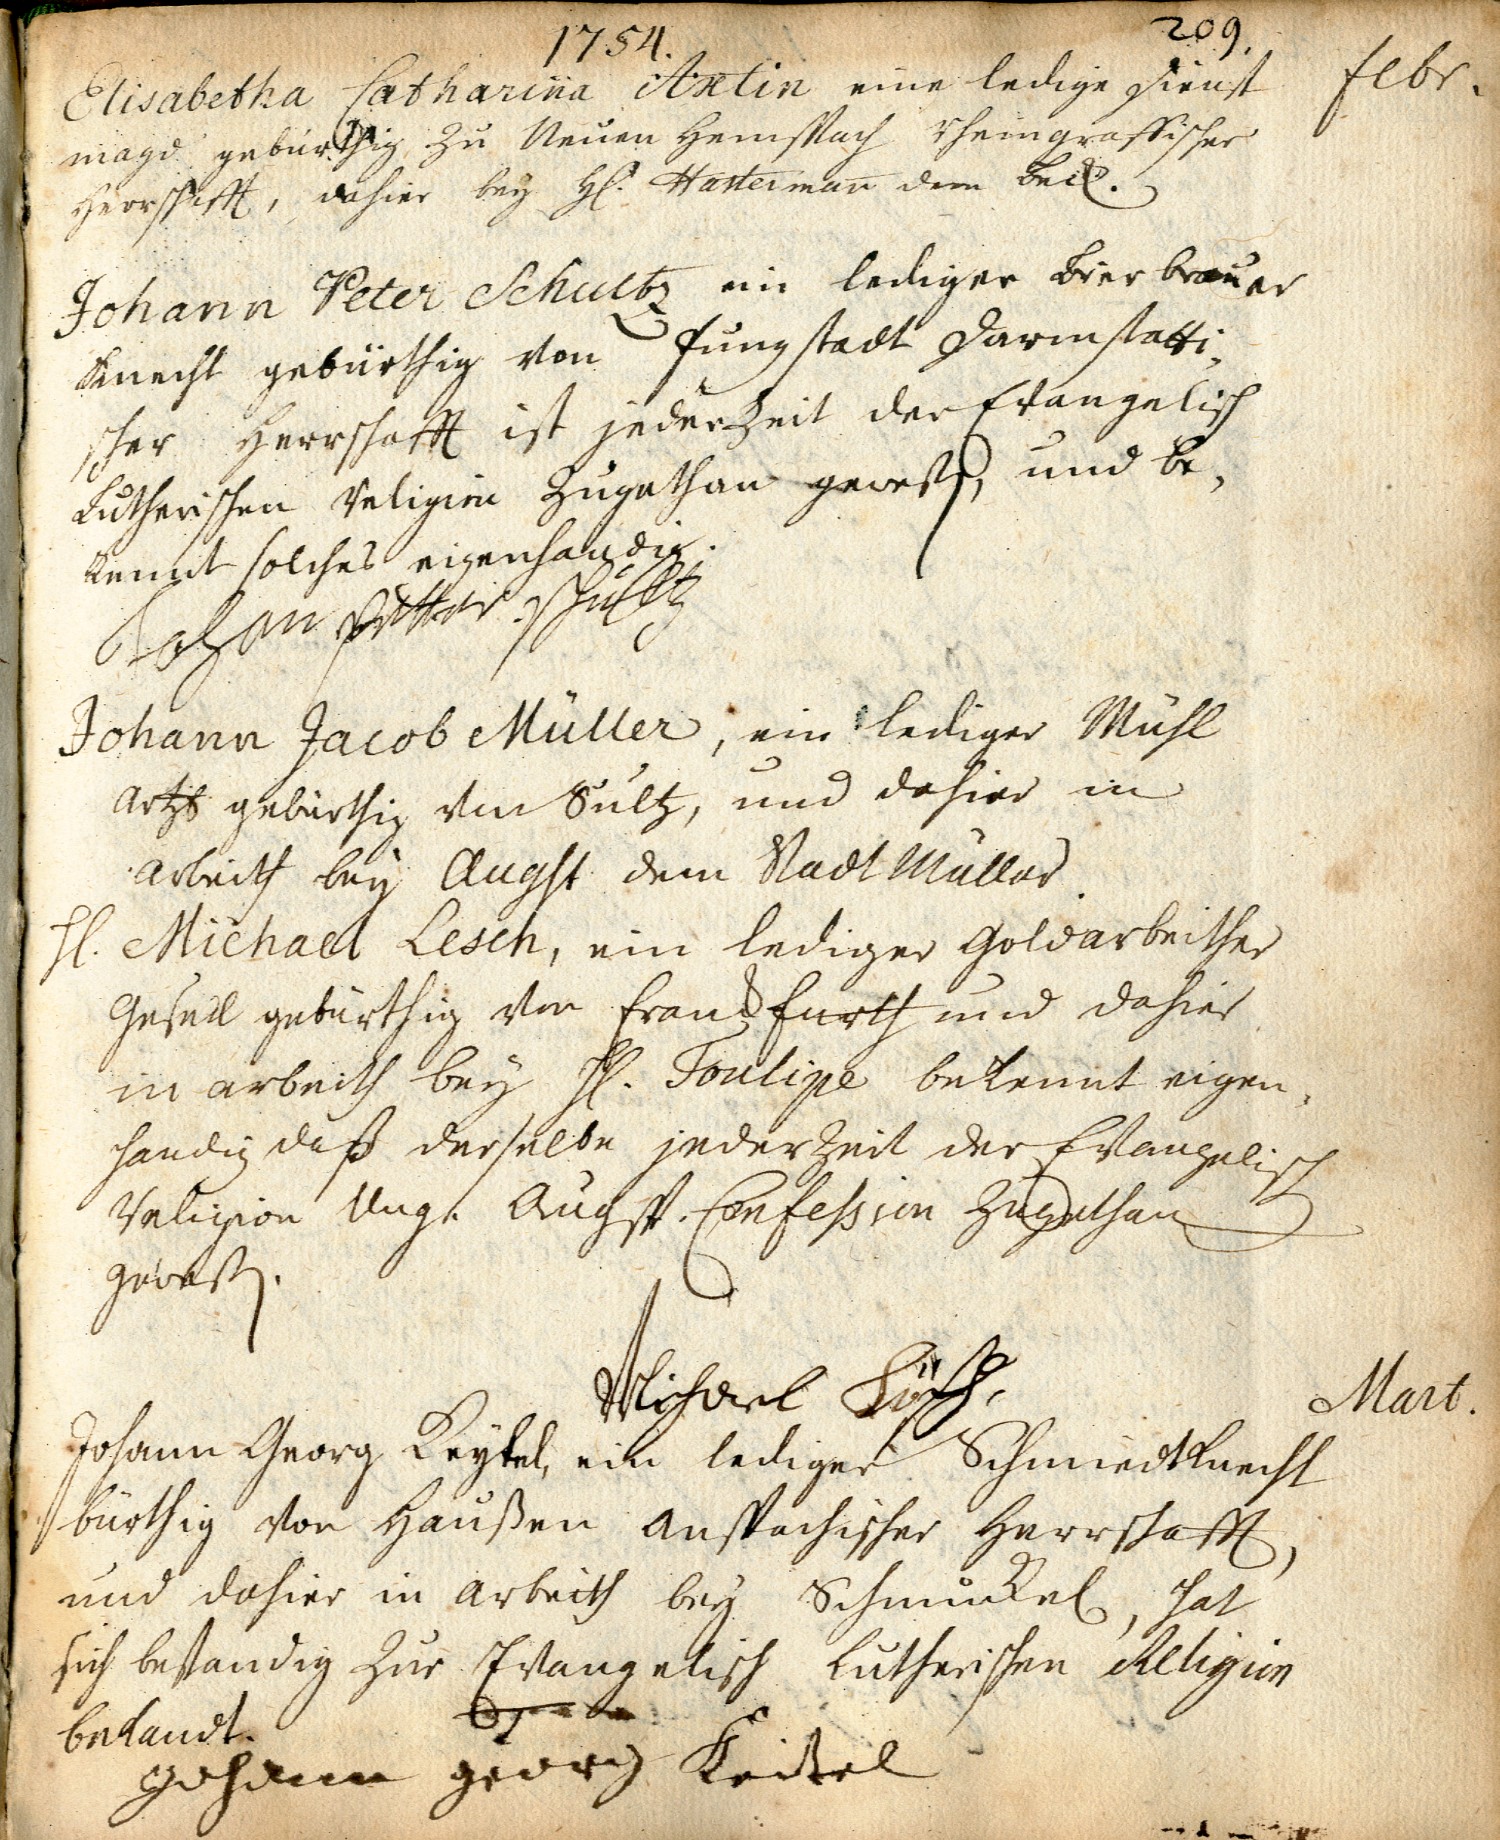 1754.
209.
Febr.
Elisabetha Catharina Axtin eine ledige Dienst
magd gebürthig zu Neuen Hemsbach Rheingraffischer
Herrschafft, dahier bey H. Hasterman dem Beck.
Johann Peter Schultz ein lediger Bierbrauer
Knecht gebürthig von Pfungstadt Darmstatti,
scher Herrschafft ist jederzeit der Evangelisch
Lutherischen Religion zugethan gewest, und be,
kennt solches eigenhandig.
Johan Petter Schultz
Johann Jacob Müller, ein lediger Mühl
artzt gebürthig von Sultz, und dahier in
arbeith bey Augst dem Stadt Müller.
H. Michael Lesch, ein lediger Goldarbeither
Gesell gebürthig von Franckfurth und dahier
in arbeith bey H. Toulipe bekennt eigen,
handig daß derselbe jederzeit der Evangelisch
Religion Ung. Augsp. Confession zugethan
gewest.
Michael Lösch,
Mart.
Johann Georg Keytel, ein lediger Schmiedtknecht
bürthig von Haußen Anspachischer Herrschafft,
und dahier in arbeith bey Schmuckel, hat
sich bestandig zur Evangelisch Lutherischen Religion
bekandt.
Johann Georg Keitel